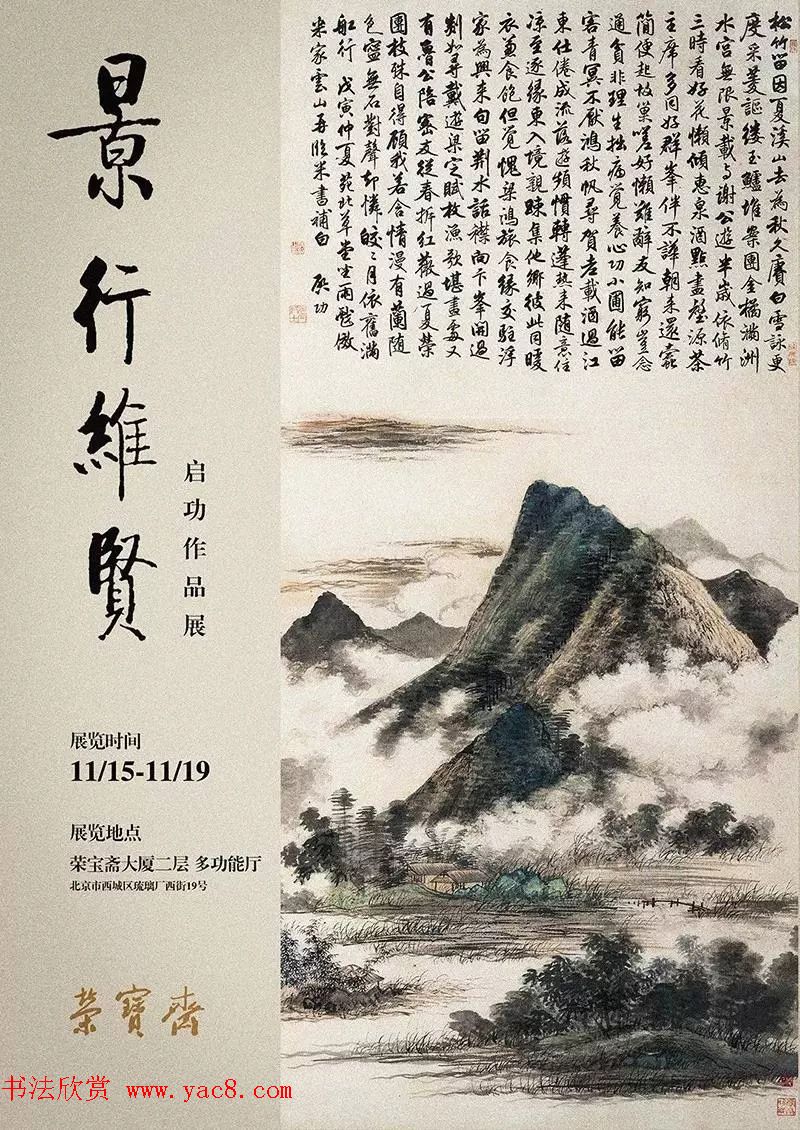 景行維賢
启功作品展
展览时间
11/15-11/19
展览地点
荣宝斋大厦二层 多功能厅
北京市西城区琉璃厂西街19号
榮寶齋
松竹留因夏溪山去為秋久賡白雪詠更
度采菱謳缕玉鱸堆案團金橘滿洲
水宮無限景載与謝公遊半歲依脩竹
三時看好花懶傾惠泉酒點盡壑源茶
主席多同好群峯伴不譁朝来還蠹
簡便起故巢嗟好懶難辭友知窮豈念
通貧非理生拙病覺養心功小圃能留
客青冥不厭鴻秋帆尋賀老載酒過江
東仕倦成流落遊頻慣轉蓬熱来随意住
凉至逐緣東入境親疎集他鄉彼此同暖
衣兼食飽但覺愧梁鴻旅食緣交駐浮
家為興来句留荆水話襟向卞峯開過
剡如尋戴遊梁定賦枚漁歌堪畫處又
有魯公陪密友從春拆紅薇過夏榮
團枝殊自得顧我若含情漫有蘭随
色寧無石對聲却憐皎々月依舊滿
舡行 戊寅仲夏苑北草堂坐雨戲倣
米家雲山再臨米書補白 啟功
书法欣赏 www.yac8.com